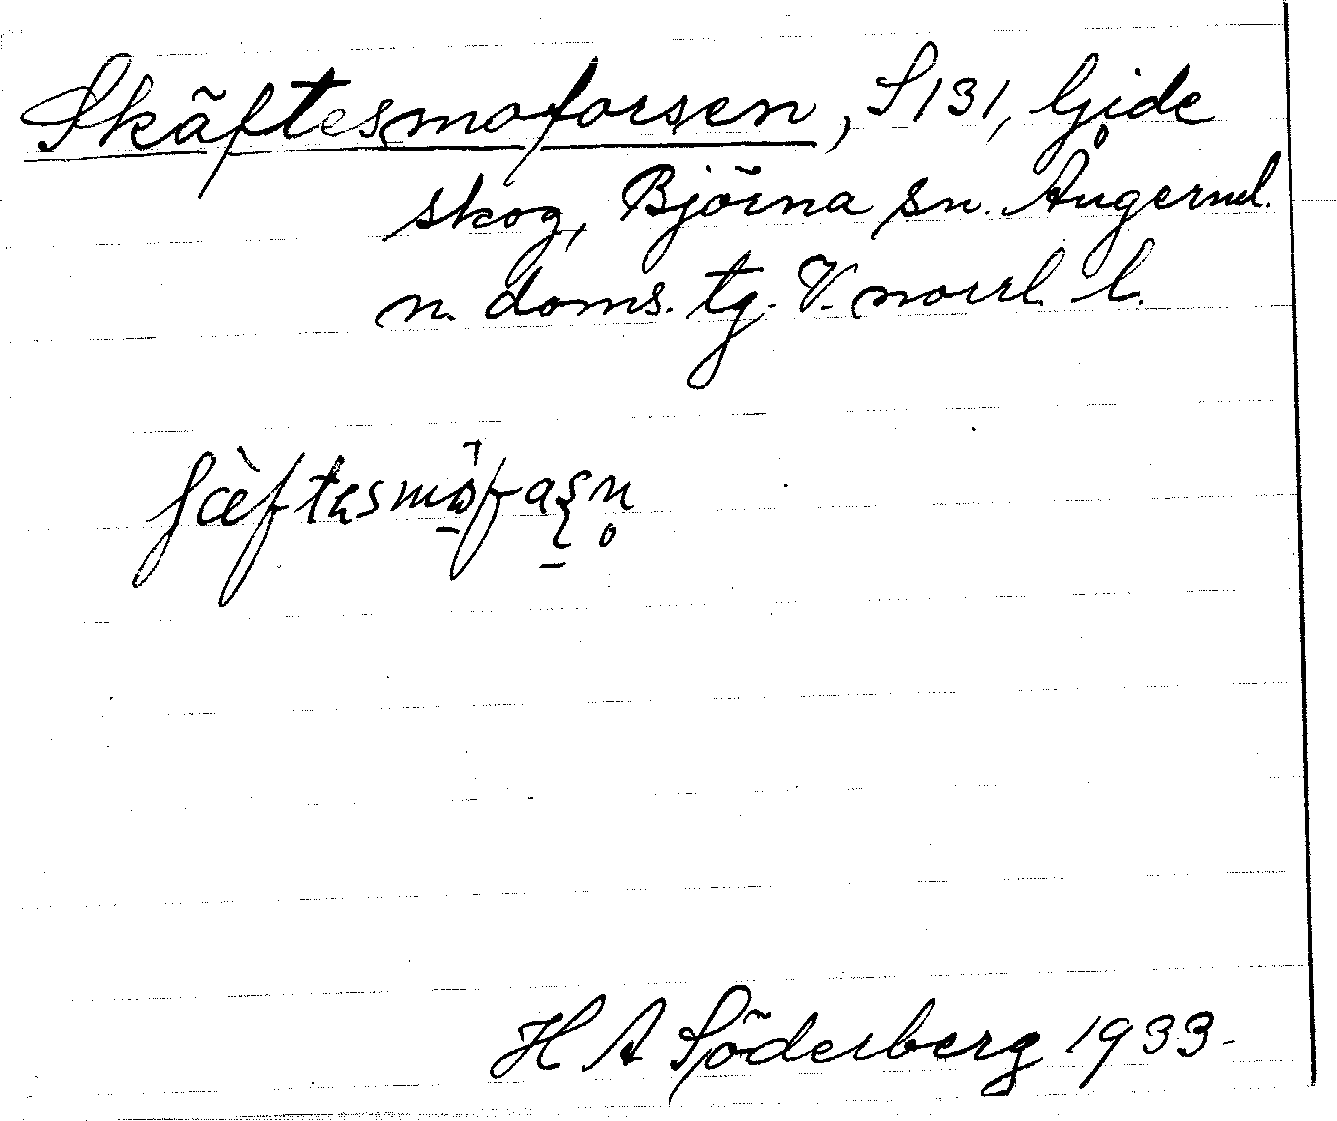 Skäftesmoforsen, S131, Gide
skog, Björna sn. Ångerml.
n. doms. tg. V. norrl. l.
ʃæ̀ftəsmo̱̍faʂn̥
H A Söderberg 1933